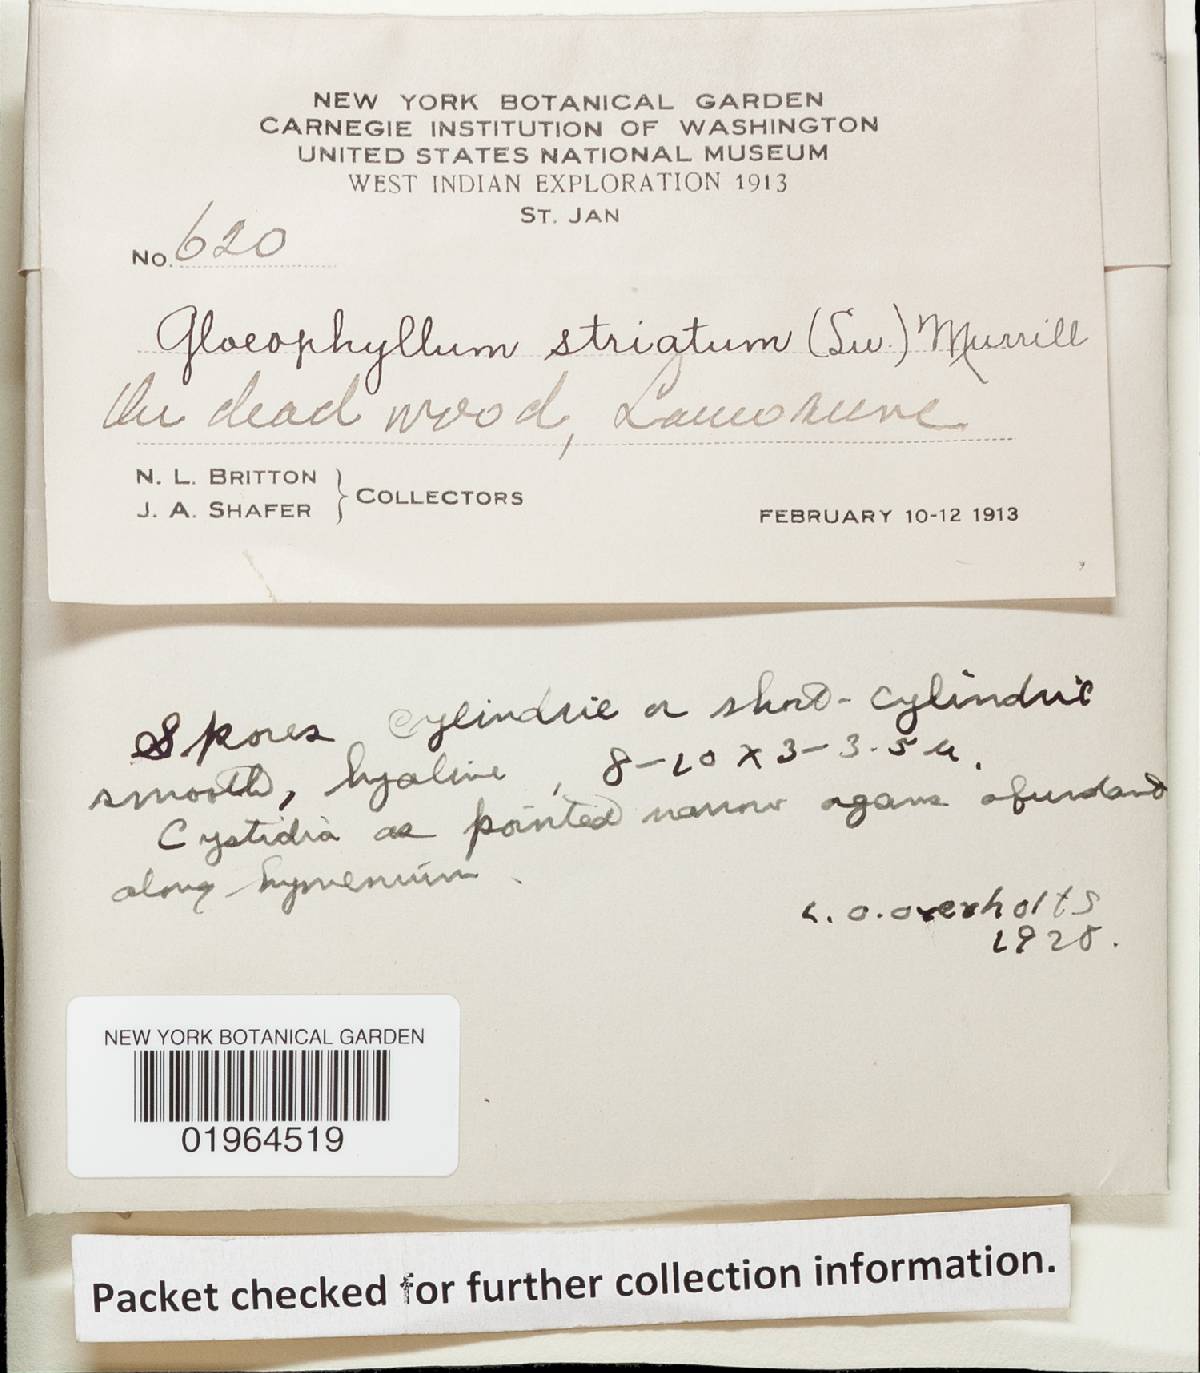 NEW YORK BOTANICAL GARDEN
CARNEGIE INSTITUTION OF WASHINGTON
UNITED STATES NATIONAL MUSEUM
WEST INDIAN EXPLORATION 1913
ST. JAN
No. 620
Gloeophyllum striatum (Sw.) Murrill
On dead wood,
N. L. BRITTON
J. A. SHAFER } COLLECTORS
FEBRUARY 10-12 1913
Spores cylindric or short-cylindric
smooth, hyaline, 8-10 x 3-3.5 µ.
Cystidia as pointed narrow organs abundant
along hymenium.
L. O. Overholts
1928.
NEW YORK BOTANICAL GARDEN
01964519
Packet checked for further collection information.